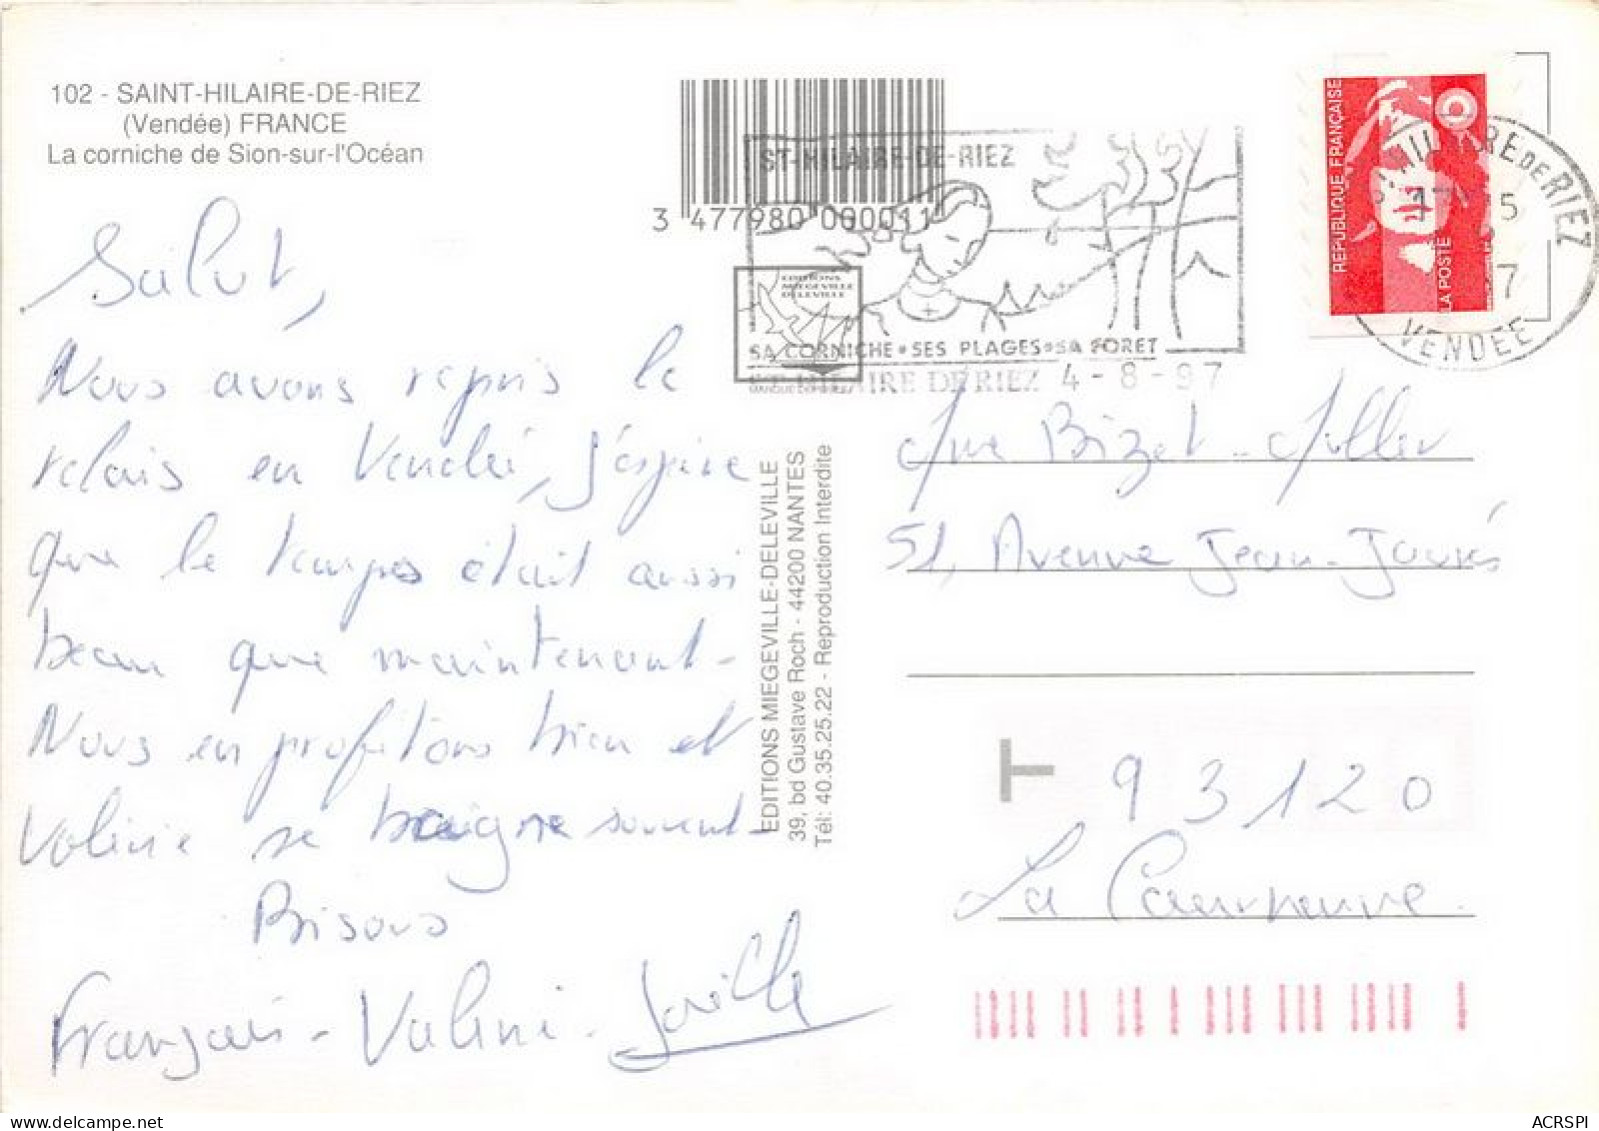 102 - SAINT-HILAIRE-DE-RIEZ
(Vendée) FRANCE
La corniche de Sion-sur-l'Océan
Salut,
Nous avons repris le
relais en Vendée, j'espère
que le temps était aussi
beau que maintenant-
Nous en profitons bien et
Valérie se baigne souvent-
Bisous
Valérie - Joëlle
3 477980 000011
ST-HILAIRE-DE-RIEZ
EDITIONS
MIEGEVILLE
DELEVILLE
SA CORNICHE • SES PLAGES • SA FORET
ST HILAIRE DE RIEZ 4 - 8 - 97
EDITIONS MIEGEVILLE-DELEVILLE
39, bd Gustave Roch - 44200 NANTES
Tél: 40.35.25.22 - Reproduction Interdite
REPUBLIQUE FRANÇAISE
LA POSTE
HILAIRE DE RIEZ
VENDEE
Bizet
51, Avenue Jean-Jaurès
T 93120
La Courneuve.
ACRSPI